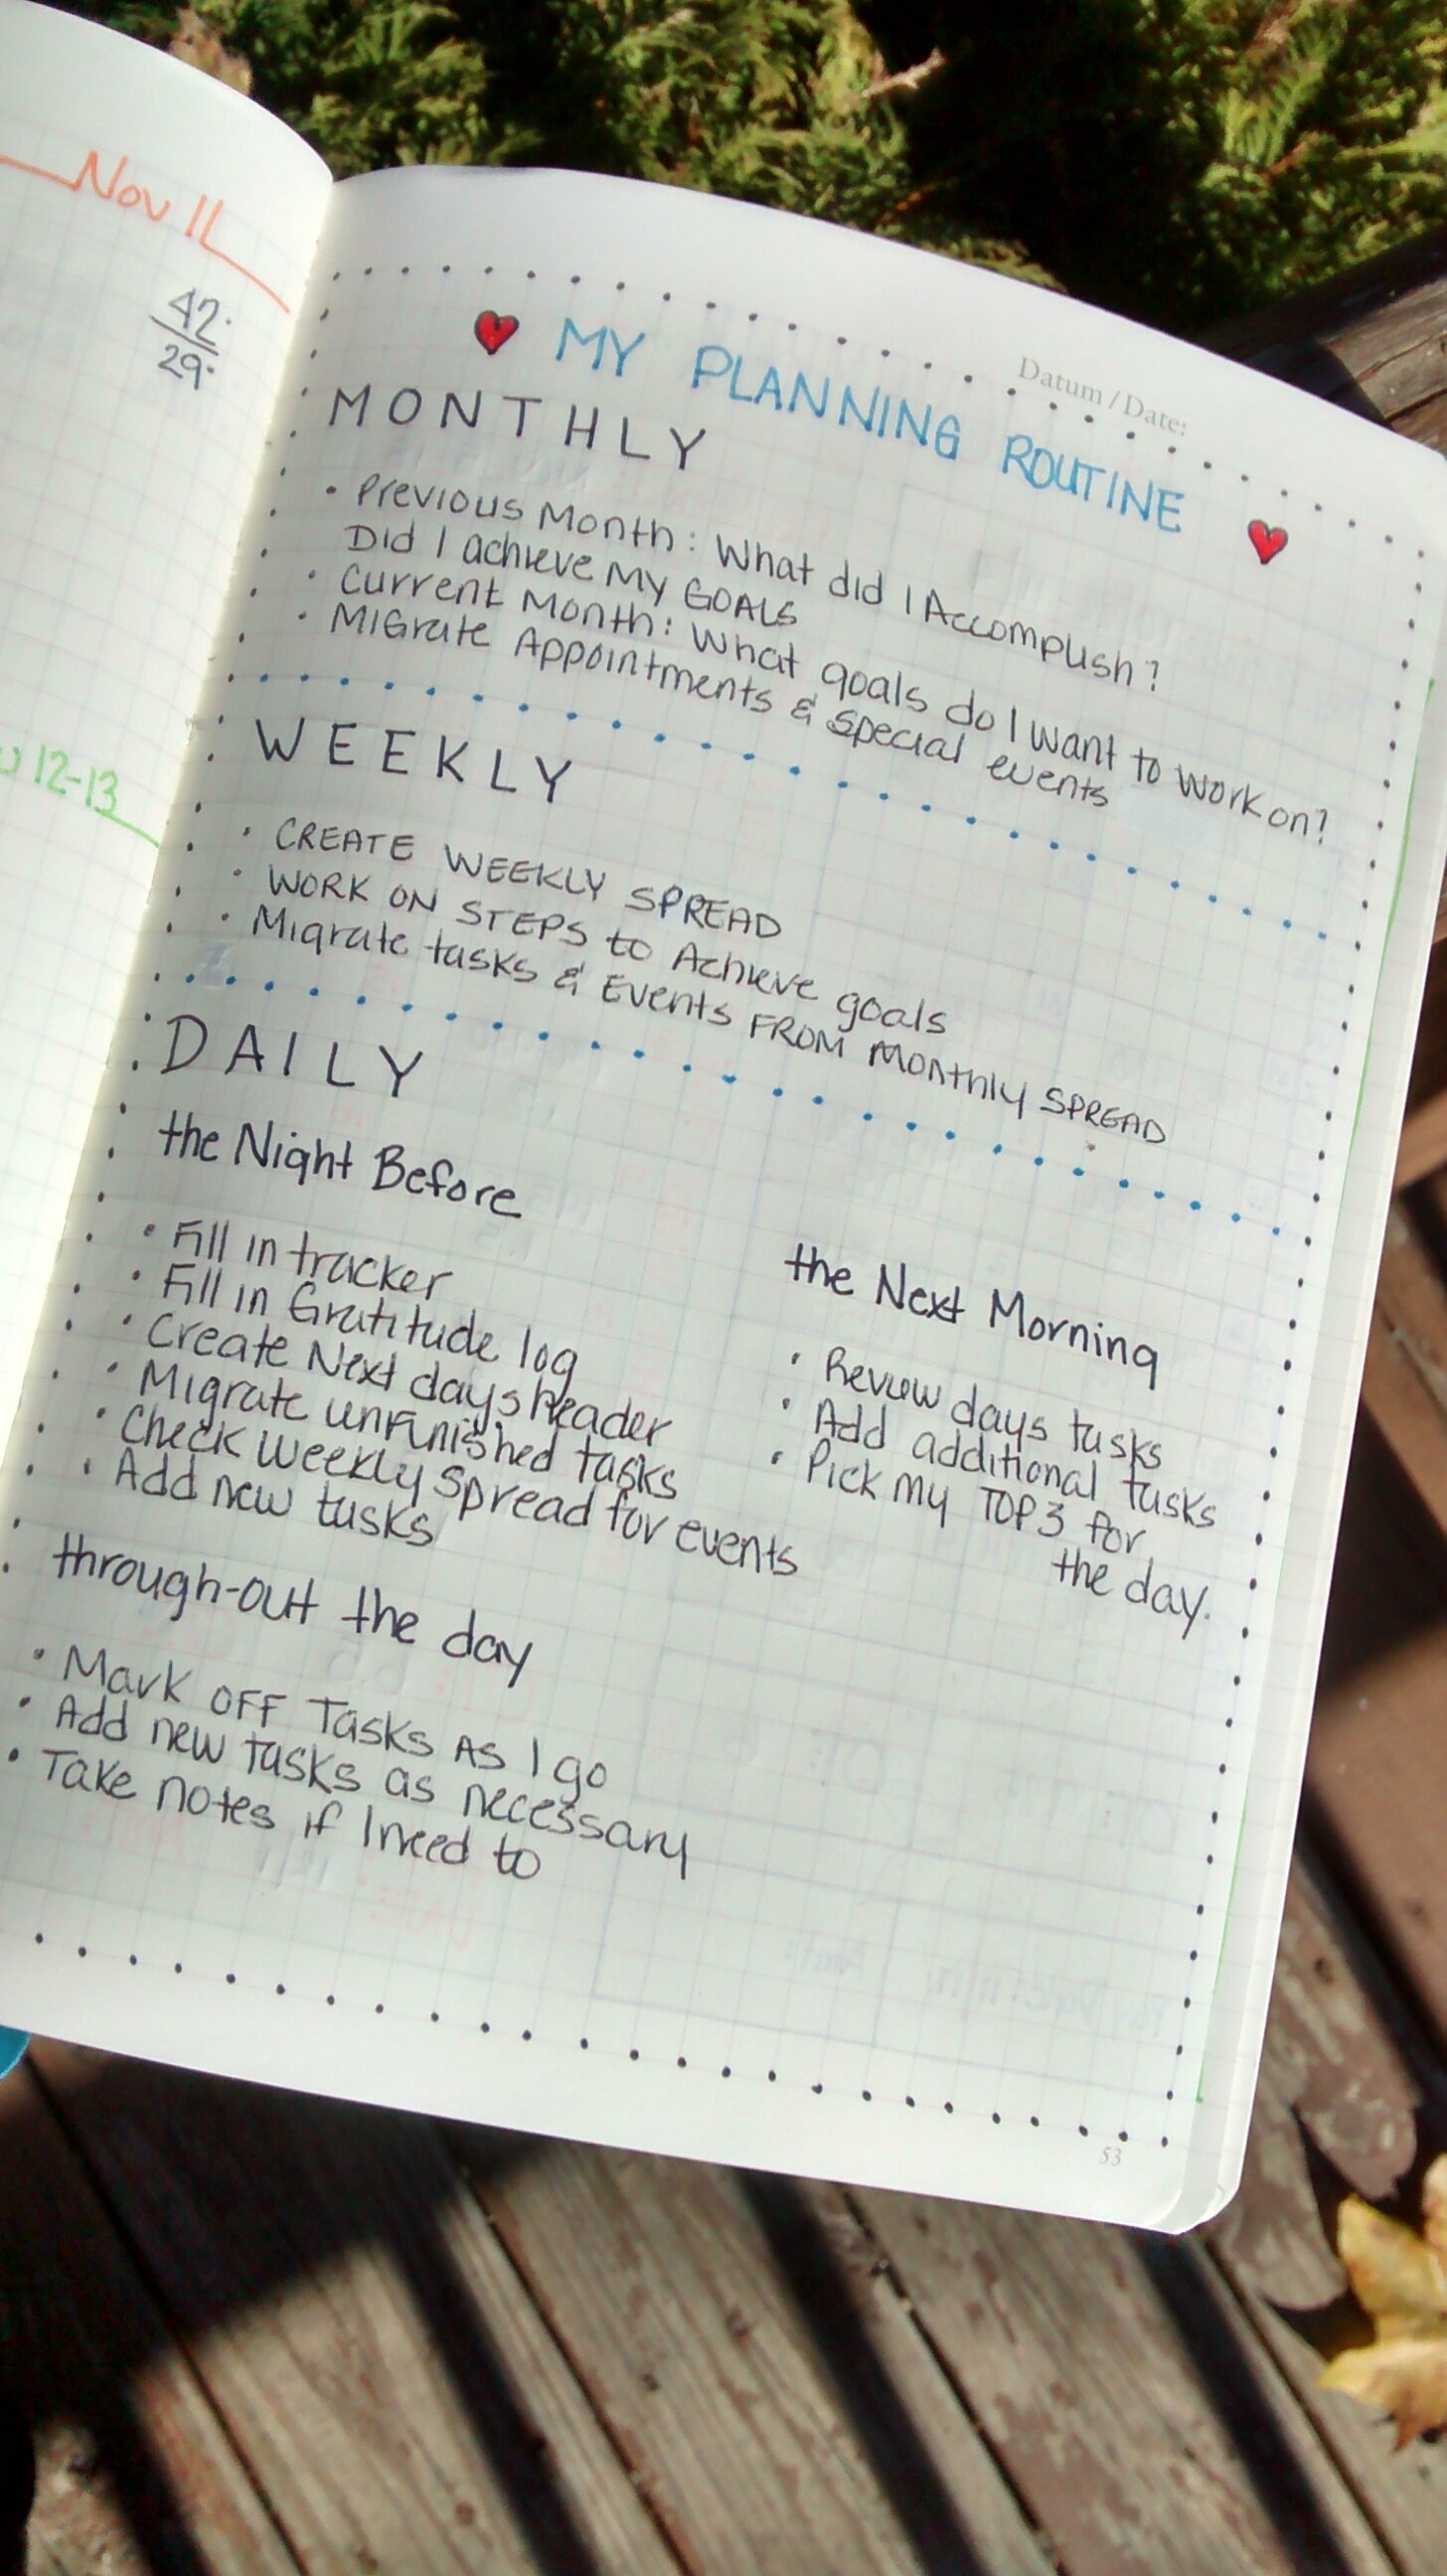 Nov 11
42
29
12-13
Datum / Date:
MY PLANNING ROUTINE
MONTHLY
• Previous Month: What did I Accomplish?
Did I achieve MY GOALS
• Current Month: What goals do I want to work on?
• MIGrate Appointments & special events
WEEKLY
• CREATE WEEKLY SPREAD
• WORK ON STEPS to Achieve goals
• Migrate tasks & Events FROM Monthly SPREAD
DAILY
the Night Before
• Fill in tracker
• Fill in Gratitude log
• Create Next days header
• Migrate unfinished tasks
• Check Weekly spread for events
• Add new tasks
the Next Morning
• Review days tasks
• Add additional tasks
• Pick my TOP 3 for
the day.
through-out the day
• Mark OFF Tasks As I go
• Add new tasks as necessary
• Take notes if I need to
53